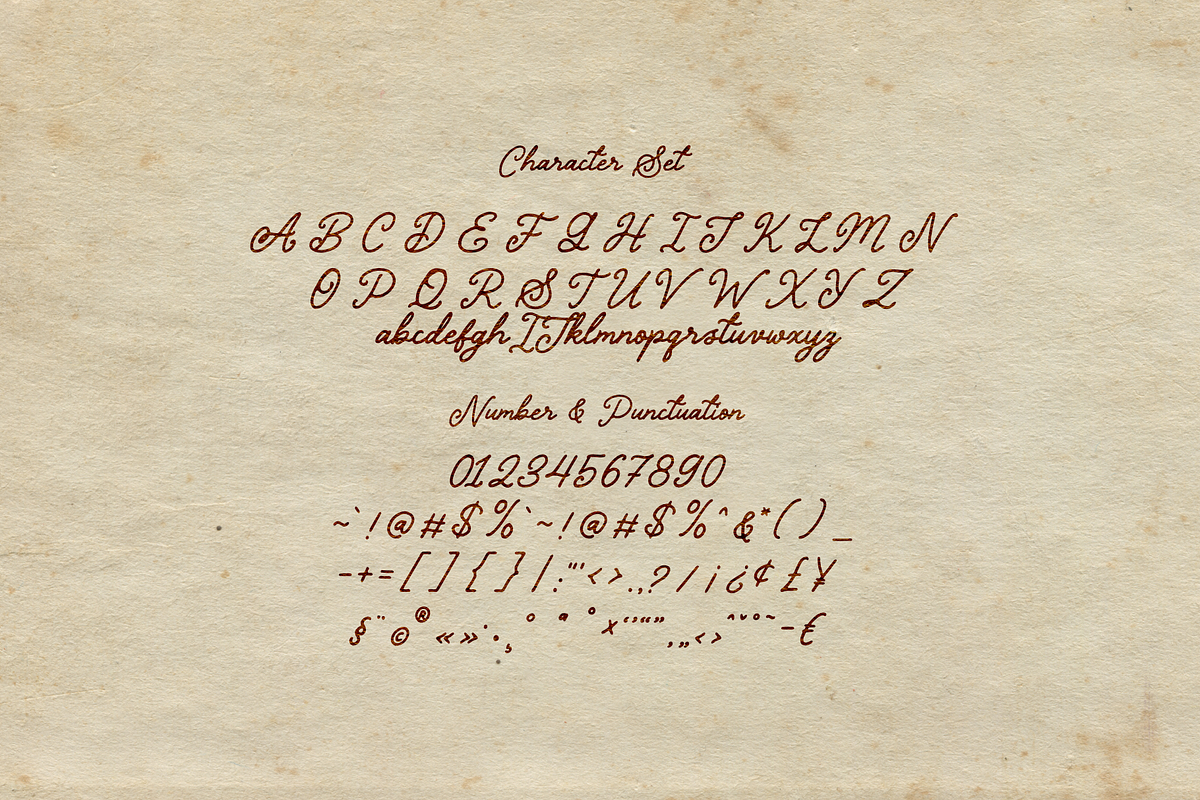 Character Set
A B C D E F G H I J K L M N
O P Q R S T U V W X Y Z
abcdefgh IJklmnopqrstuvwxyz
Number & Punctuation
01234567890
~`!@#$%`~!@#$%^&*()_
-+=[]{}|:"'<>.,?/¡¿¢£¥
§¨©®«»·•¸°ªº×‘’“”‚„‹›ˆˇ˚˜–€